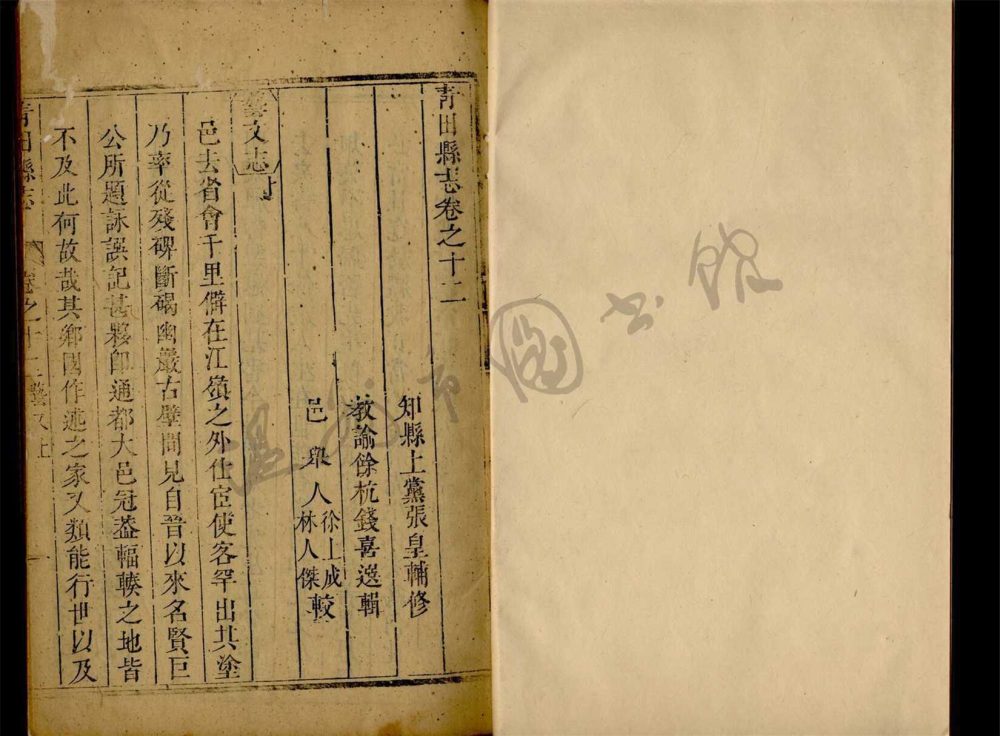 青田縣志卷之十二
知縣上黨張皇輔修
教諭餘杭錢喜選輯
邑舉人徐上成林人傑較
藝文志
邑去省會千里僻在江嶺之外仕宦使客罕出其塗
乃率從殘碑斷碣幽巖古壁間見自晉以來名賢巨
公所題詠誤記甚夥即通都大邑冠蓋輻輳之地皆
不及此何故哉其鄉國作述之家又類能行世以及
青田縣志
卷之十二藝文上
市圖書館